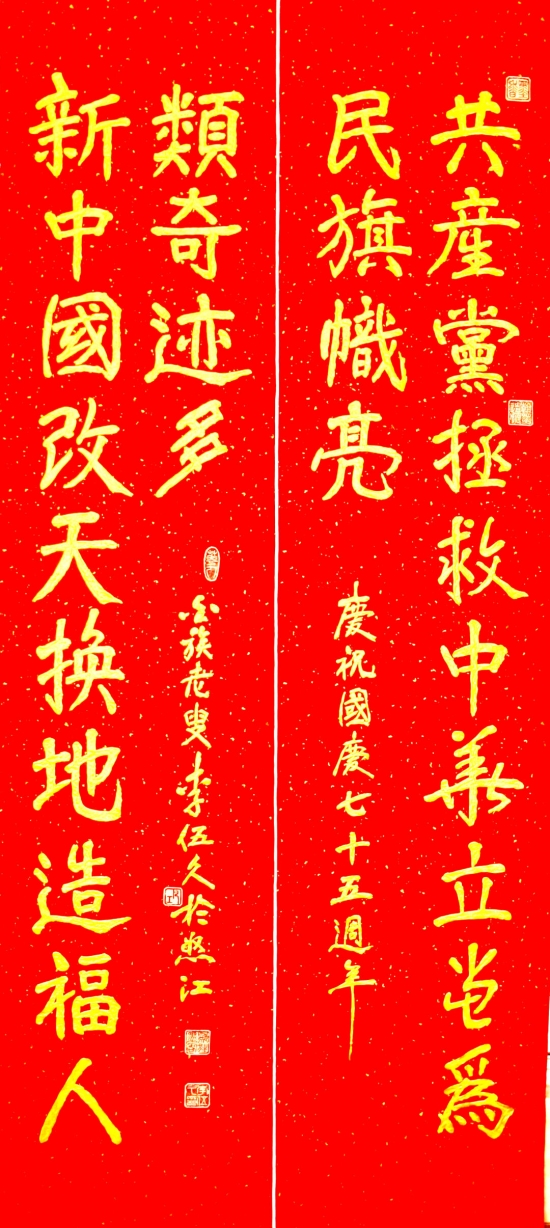 共産黨拯救中華立党為
民旗幟亮
慶祝國慶七十五週年
新中國改天換地造福人
類奇迹多
白族老叟李伍久於怒江